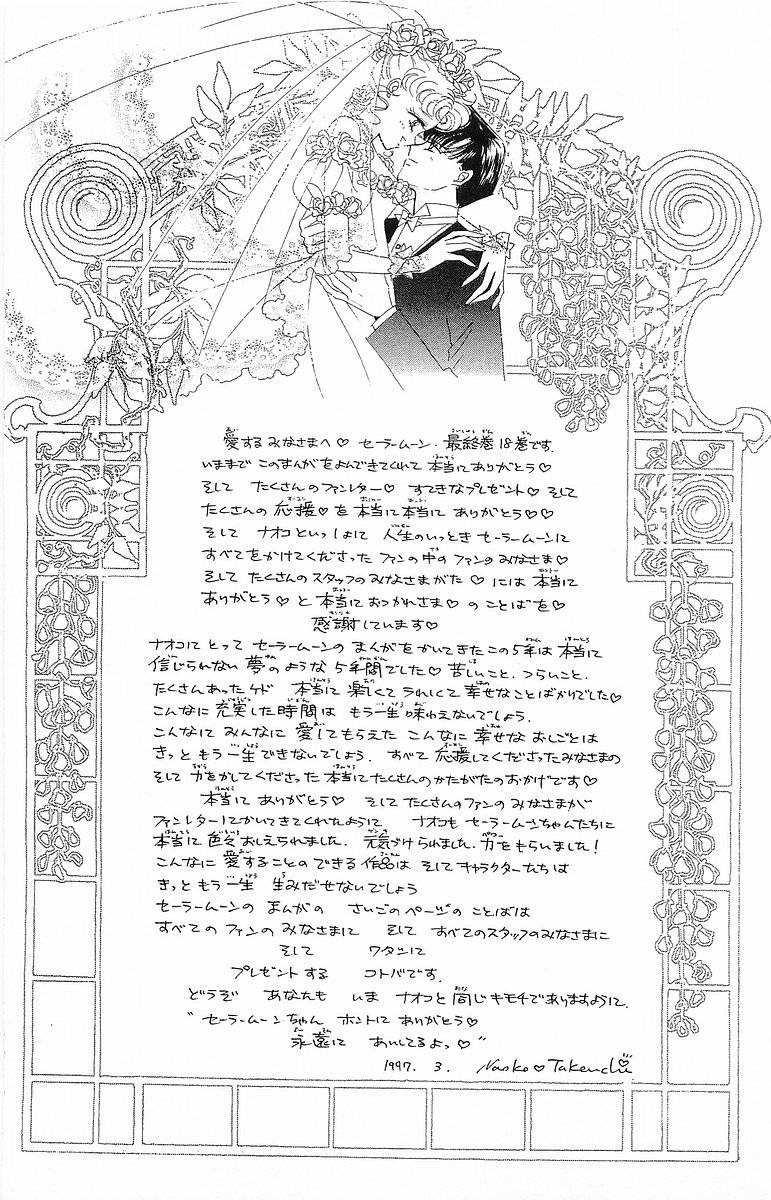 愛する みなさまへ♡ セーラームーン・最終巻 18巻です.
いままで このまんがをよんできてくれて 本当にありがとう♡
そして たくさんのファンレター♡ すてきなプレゼント♡ そして
たくさんの 応援♡を 本当に本当に ありがとう♡♡
そして ナオコといっしょに 人生のいっとき セーラームーンに
すべてをかけてくださった ファンの中の ファンの みなさま♡
そして たくさんのスタッフのみなさまがた♡には 本当に
ありがとう♡ と 本当におつかれさま♡ の ことばを♡
感謝しています♡
ナオコに とって セーラームーンの まんがをかいてきた この5年は 本当に
信じられない 夢のような 5年間でした♡ 苦しいこと. つらいこと.
たくさんあったケド 本当に 楽しくて うれしくて 幸せなことばかりでした♡
こんなに 充実した時間は もう一生 味わえないでしょう.
こんなに みんなに 愛してもらえた こんなに 幸せな おしごとは
きっと もう一生できないでしょう. すべて 応援してくださったみなさまの
そして 力をかしてくださった 本当にたくさんのかたがたのおかげです♡
本当に ありがとう♡ そして たくさんの ファンの みなさまが
ファンレターにかいてきてくれたように ナオコも セーラームーンちゃんたちに
本当に 色々 おしえられました. 元気づけられました. 力をもらいました!
こんなに 愛することの できる 作品は そして キャラクターたちは
きっと もう一生 生みだせないでしょう
セーラームーンの まんがの さいごの ページの ことばは
すべての ファンの みなさまに そして すべてのスタッフのみなさまに
そして ワタシに
プレゼントする コトバです.
どうぞ あなたも いま ナオコと 同じ キモチで ありますように.
"セーラームーンちゃん ホントに ありがとう♡
永遠に あいしてるよっ♡"
1997. 3. Naoko♡Takeuchi